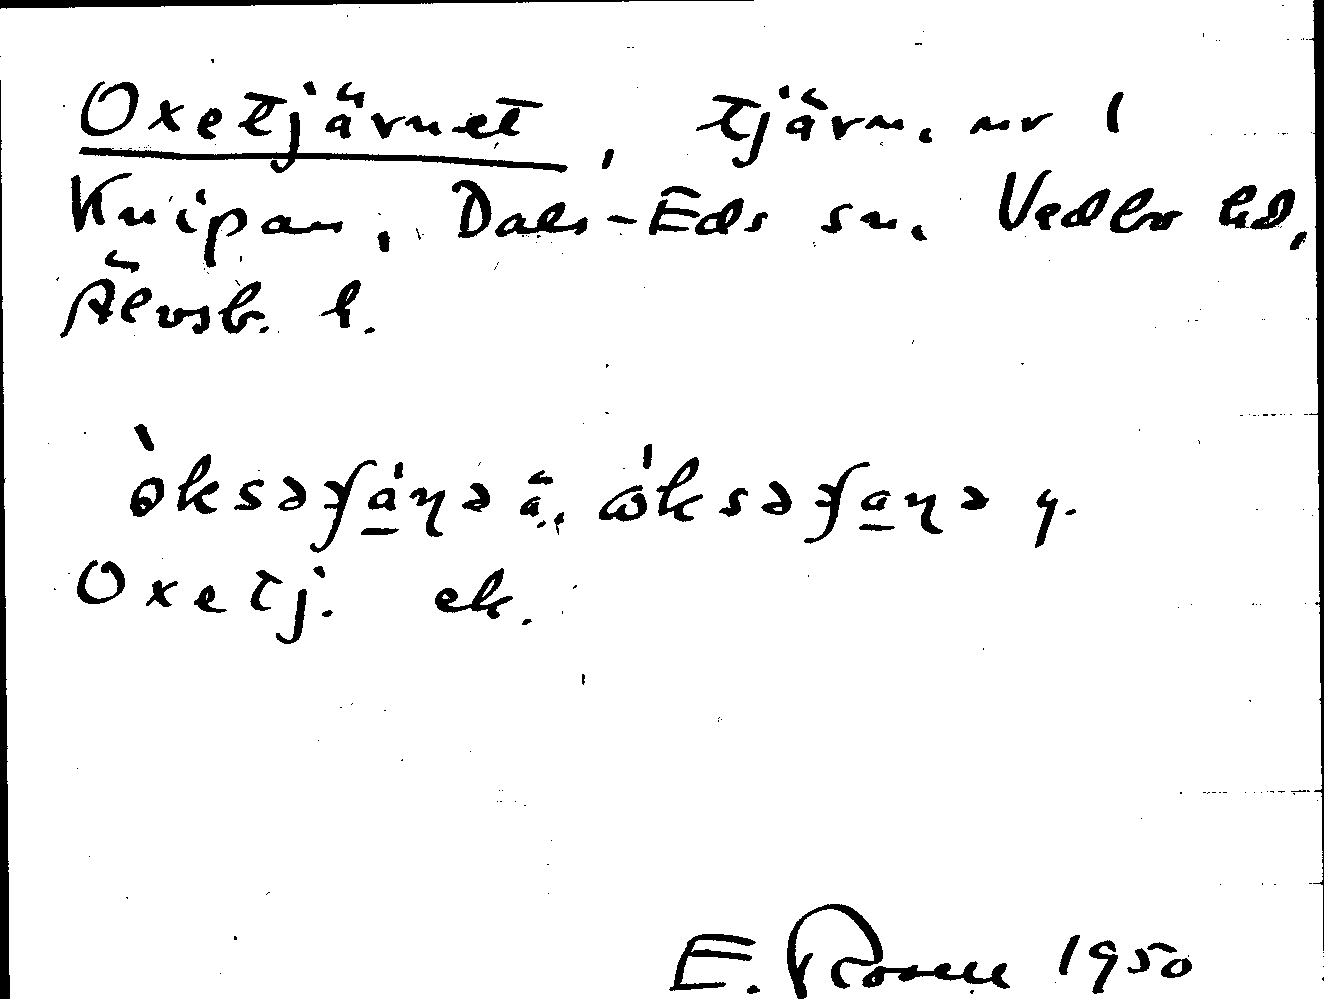 Oxetjärnet, tjärn. nr 1
Knipan, Dals-Eds sn. Vedbo hd,
Älvsb. l.
ä. y.
Oxetj. ek.
E. Rosell 1950